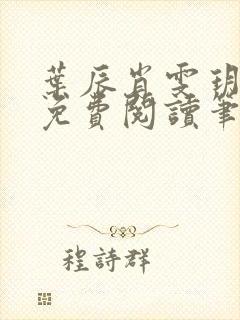 葉辰肖雯玥
免費閱讀筆
程詩群